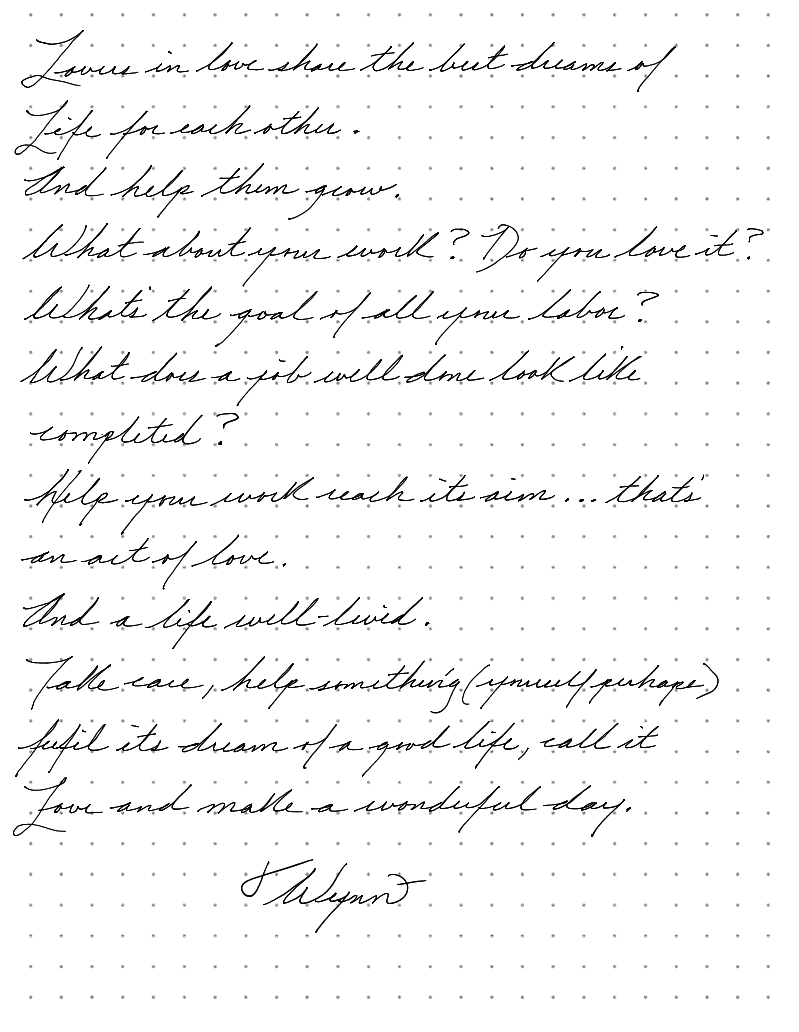 Lovers in love share the best dreams of
Life for each other.
And help them grow.
What about your work? Do you love it?
What's the goal of all your labor?
What does a job well done look like
completed?
Help your work reach its aim... that's
an act of love.
And a life well-lived.
Take care, help something (yourself perhaps)
fulfil its dream of a good life, call it
Love and make a wonderful day.
Wynn